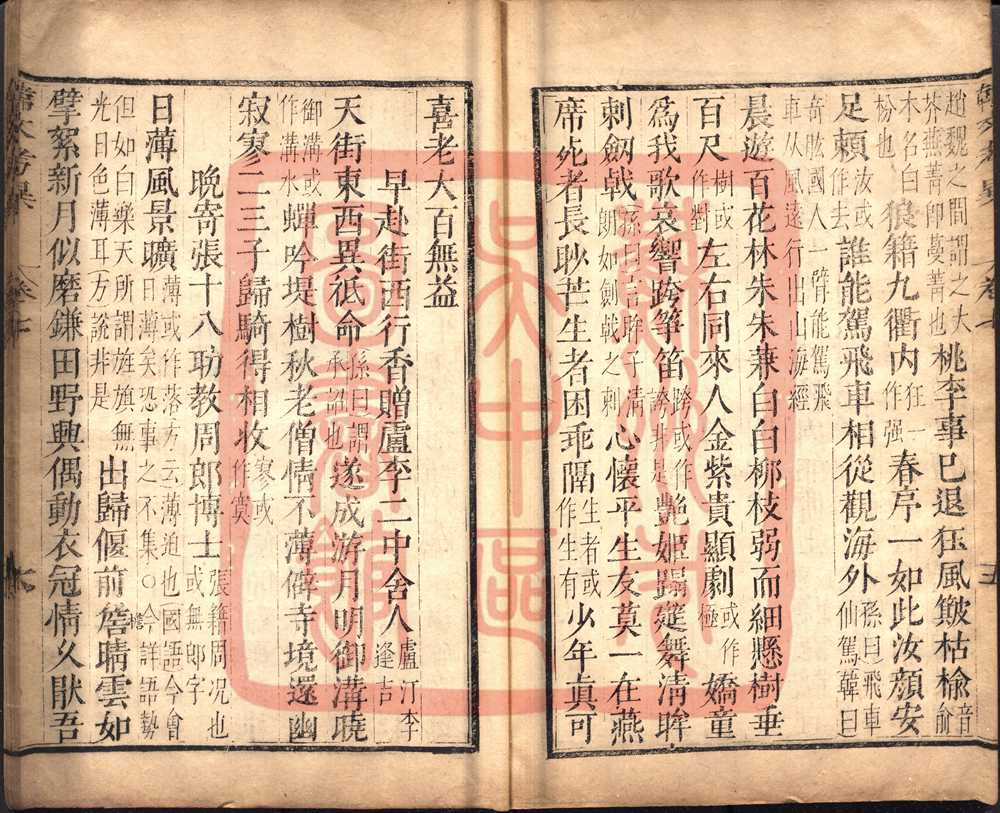 趙魏之間謂之大
芥燕菁即蔓菁也桃李事已退狂風簸枯榆音俞
木名白
枌也狼籍九衢内狂一作强春序一如此汝顔安
足賴汝或作去誰能駕飛車相從觀海外孫曰飛車仙駕韓曰
奇肱國人一臂能駕飛
車从風遠行出山海經
晨遊百花林朱朱兼白白栁枝弱而細懸樹垂
百尺樹或作對左右同來人金紫貴顯劇或作極嬌童
爲我歌哀響跨筝笛跨或作誇非是艶姬蹋筵舞清眸
刺劒戟孫曰言眸子清朗如劍戟之刺心懷平生友莫一在燕
席死者長眇芒生者困乖隔生者或作生有少年真可
喜老大百無益
早赴街西行香贈盧李二中舍人盧汀李逢吉
天街東西異祗命孫曰謂承詔也遂成游月明御溝曉
御溝或作溝水蟬吟堤樹秋老僧情不薄僻寺境還幽
寂寥二三子歸騎得相收寥或作寞
晩寄張十八助教周郎博士張籍周况也或無郎字
日薄風景曠薄或作落方云薄迫也國語今會日薄矣恐事之不集○今詳語勢
但如白樂天所謂旌旗無
光日色薄耳方説非是出歸偃前簷晴雲如
簷
擘絮新月似磨鎌田野興偶動衣冠情久猒吾
卷十
五